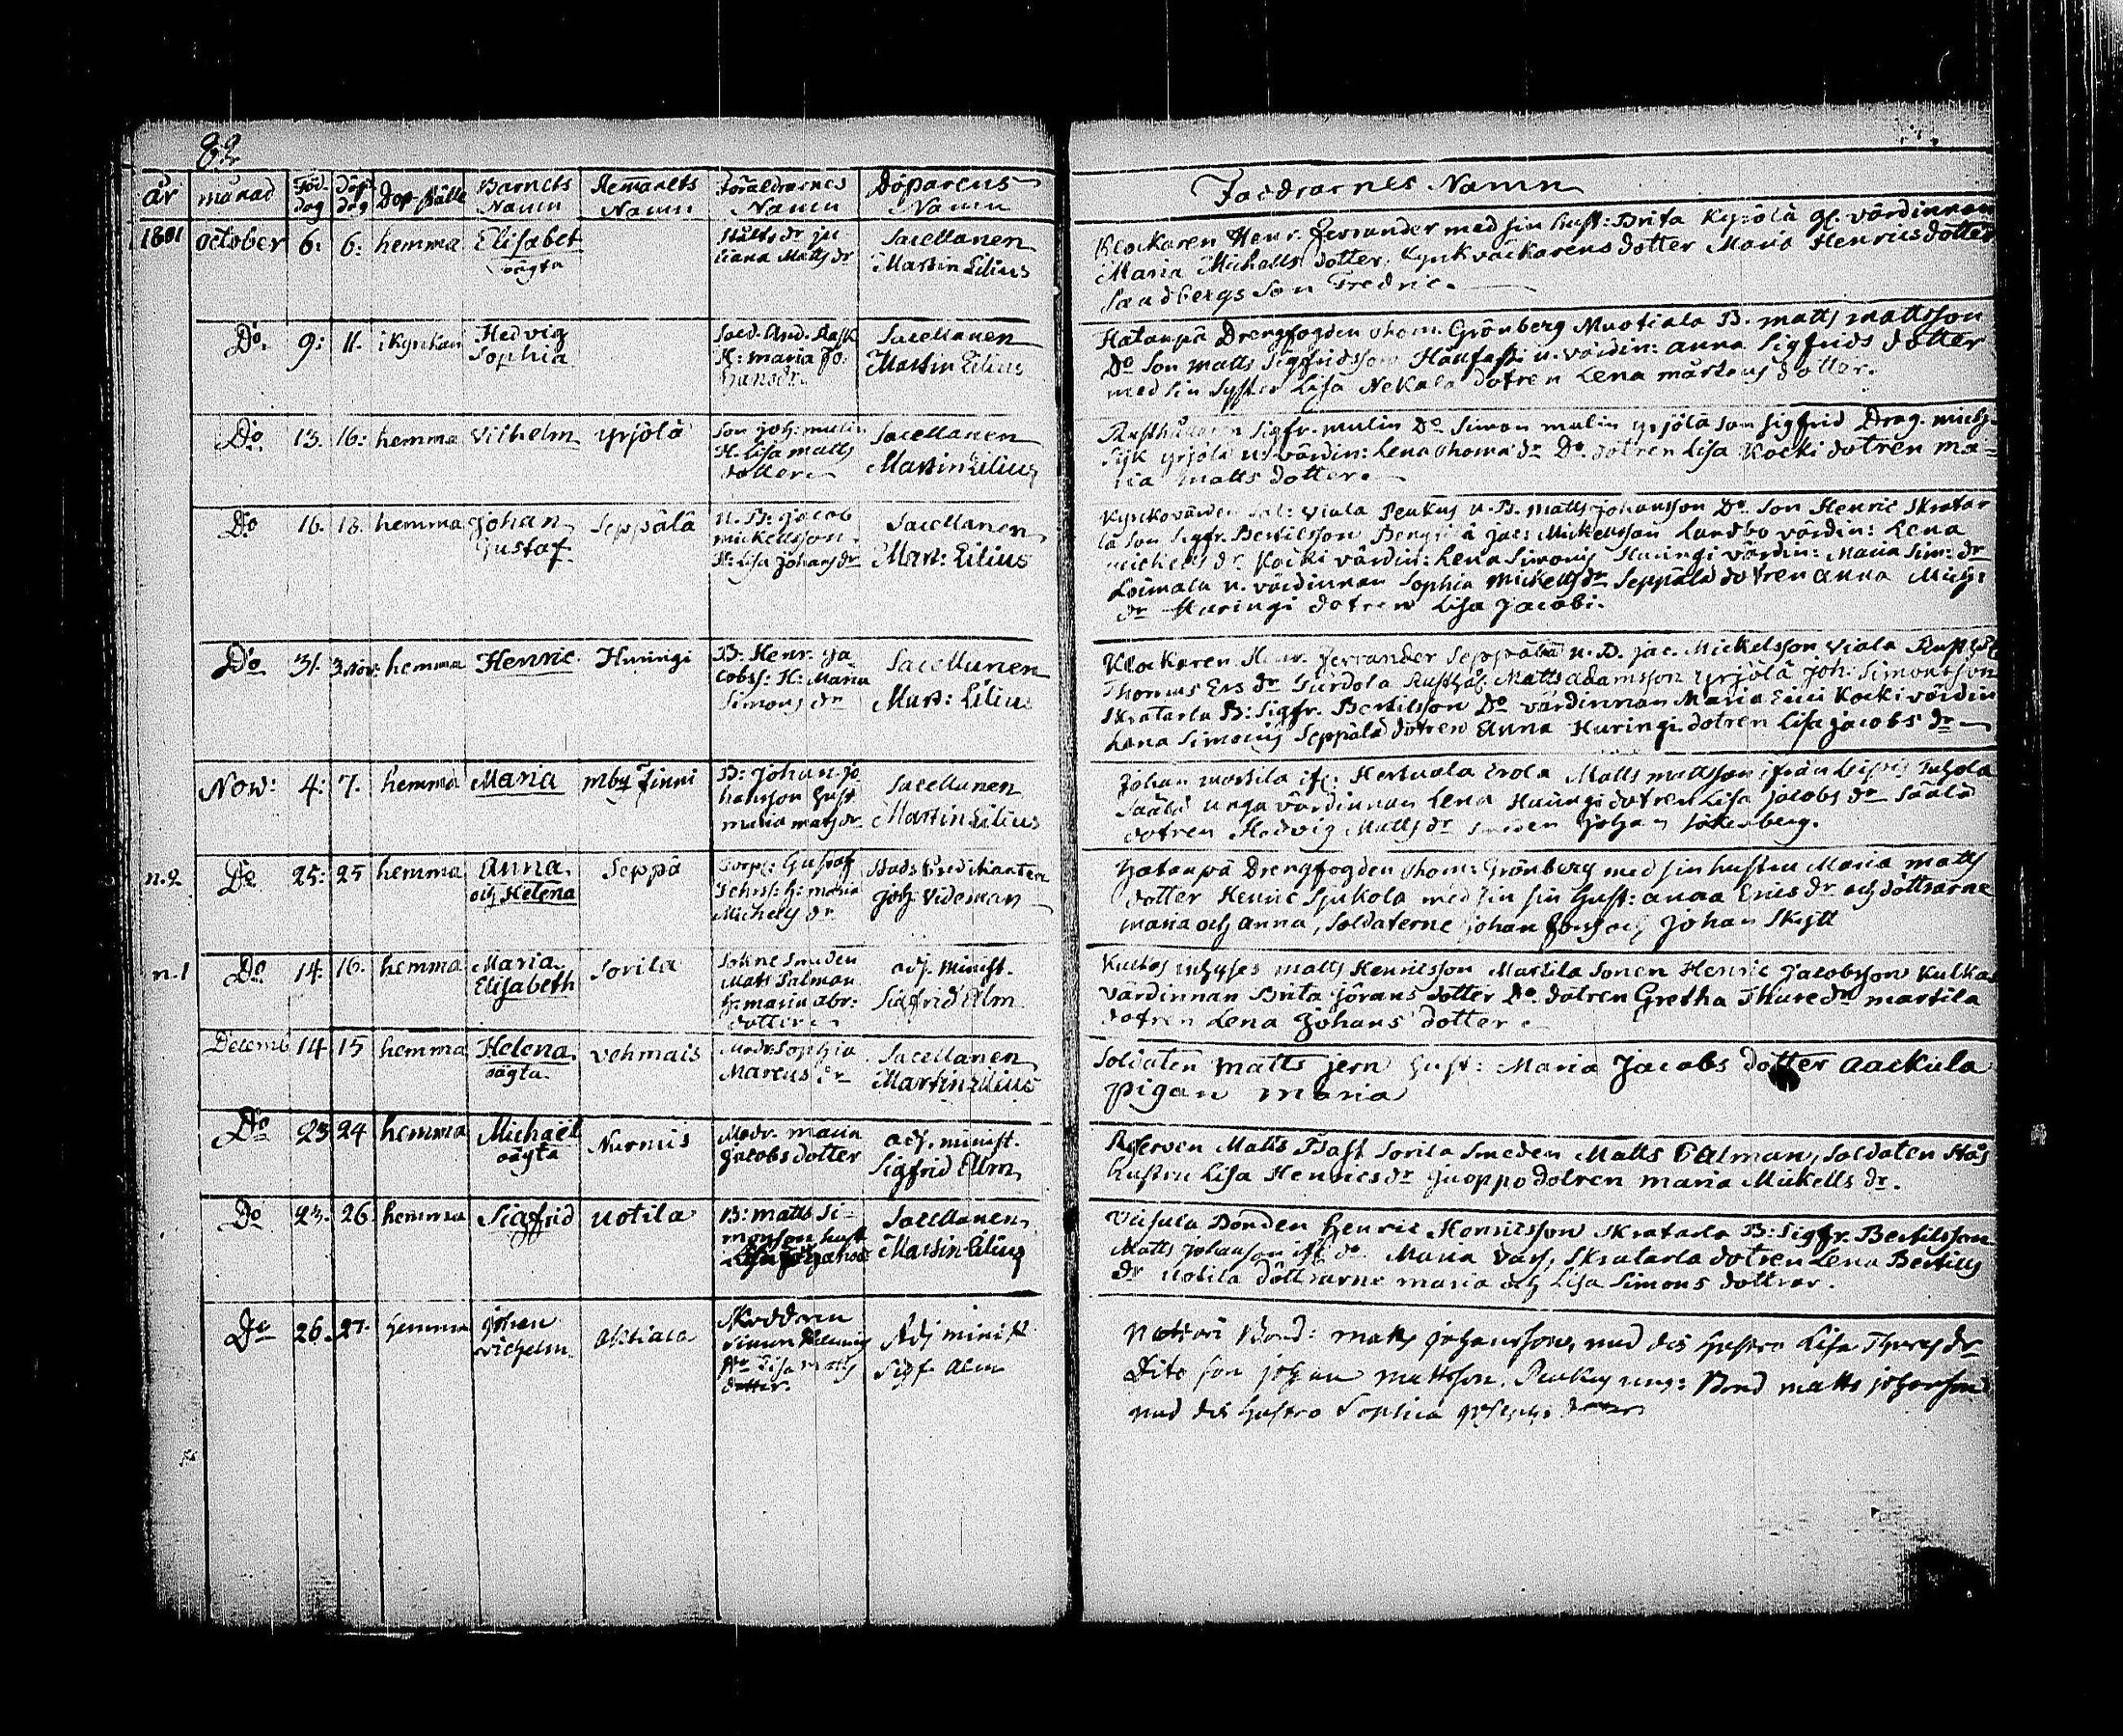 82
år månad Föd. dag Döp dag Dop-ställe Barnets Namn Hemmanets Namn Föräldrarnes Namn Döparens Namn
Faddrarnes Namn
1801 October 6: 6: hemma Elisabet oägta
liana Matts dr
Sacellanen
Martin Lilius
Klockaren Henr. Ferrander med sin hust: Brita Kyrölä gl. värdinnan
Maria Michells dotter, Kyrkväckarens dotter Maria Henrics dotter
Sandbergs Son Fredric.
Do. 9: 11. i kyrkan Hedvig
Sophia
And. Rask
H: Maria Jo:
hansdr.
Sacellanen
Martin Lilius
Hatanpä Drengfogden Thom. Grönberg Muotiala B. Matts Mattsson
Do Son Matts Sigfridsson u. värdin: Anna Sigfrids dotter
med sin Syster Lisa Nekala dotren Lena Mårtens dotter.
Do. 13. 16: hemma Vilhelm Yrjölä
Son Joh: Mulin
H. Lisa Matts
dotter
Sacellanen
Martin Lilius
Rusthållaren Sigfr. Mulin Do Simon Mulin Yrjölä Son Sigfrid Drag. Mich:
Yrjölä u. värdin: Lena Thoma dr Do. dotren Lisa Kocki dotren Ma=
ria Matts dotter.
Do 16. 18. hemma Johan
Gustaf
Seppälä
u. B: Jacob
Mickellsson.
H: Lisa Johans dr
Sacellanen
Mart: Lilius
Viala Penkus u. B. Matts Johansson Do. Son Henric Skratar
la Son Sigfr. Bertilsson Jac: Mickellsson Landbo värdin: Lena
Michels dr. Kocki värdin: Lena Simons Huringi värdin: Maria Sim: dr
Loimala u. värdinnan Sophia Mickells dr Seppälä dotren Anna Mich:
dr Huringi dotren Lisa Jacobi.
Do 31. 3 Nov: hemma Henric Huringi
B: Henr. Ja
cobss: H: Maria
Simons dr
Sacellanen
Mart: Lilius
Klockaren Henr. Ferrander Seppälä u. B. Jac. Mickelsson Viala
Thomas Ers dr Matts Adamsson Yrjölä Joh. Simonsson
Skratarla B: Sigfr. Bertilsson Do värdinnan Maria Kocki värdin
Lena Simons Seppälä dotren Anna Huringi dotren Lisa Jacobs dr
Nov: 4: 7. hemma Maria Mby Finni
B: Johan Jo
hansson hust
Maria Mats dr
Sacellanen
Martin Lilius
Johan Martila Hertuala Erola Matts Mattsson ifrån
Säälä unga värdinnan Lena Huringi dotren Lisa Jacobs dr Säälä
dotren Hedvig Matts dr Johan
n.2 Do 25: 25 hemma Anna.
och Helena
Seppä
Gustaf
H: Maria
Michels dr
Stads Predikanten
Joh: Videman
Hatanpä Drengfogden Thom: Grönberg med sin hustru Maria Matts
dotter Henric Sjukola med sin sin hust: Anna Erics dr och döttrarne
Maria och Anna, Soldaterne Johan och Johan Skytt
n.1 Do 14. 16. hemma Maria
Elisabeth
Sorila
Sokne Smeden
Mats Palman
H: Maria Abr:
dotter
adj. minist.
Sigfrid Alm
Matts Henricsson Martila Sonen Henric Jacobsson Kulkas
värdinnan Brita Jörans dotter Do dotren Gretha Thure dr Martila
dotren Lena Johans dotter.
Decemb 14 15 hemma Helena
oägta.
Vehmais
Modr. Sophia
Marcus dr
Sacellanen
Martin Lilius
Soldaten Matts Jern hust: Maria Jacobs dotter Aackula
pigan Maria
Do 23 24 hemma Michael
oägta
Nurmis
Modr. Maria
Jacobs dotter
adj. minist.
Sigfrid Alm
Reserven Matts Bast Sorila Smeden Matts Palman, Soldaten
hustru Lisa Henrics dr. Juoppo dotren Maria Mickells dr.
Do 23. 26 hemma Sigfrid Uotila
B: Matts Si-
monson hust
Sacellanen
Martin Lilius
Bonden Henric Henricsson Skratarla B: Sigfr. Bertilsson
Matts Johanson Maria Skratarla dotren Lena Bertils
dr Uotila döttrarne Maria och Lisa Simons dottrar.
Do 26. 27. hemma Johan
Vilhelm.
Aktiala
Skreddaren
Simon
Lisa Matts
dotter.
Adj minist
Sigf. Alm
Bond: Matts Johansson, med des hustro Lisa Thures dr
Dito son Johan Mattsson. Penkus ung: Bond Matts Johansson
med des hustro Sophia